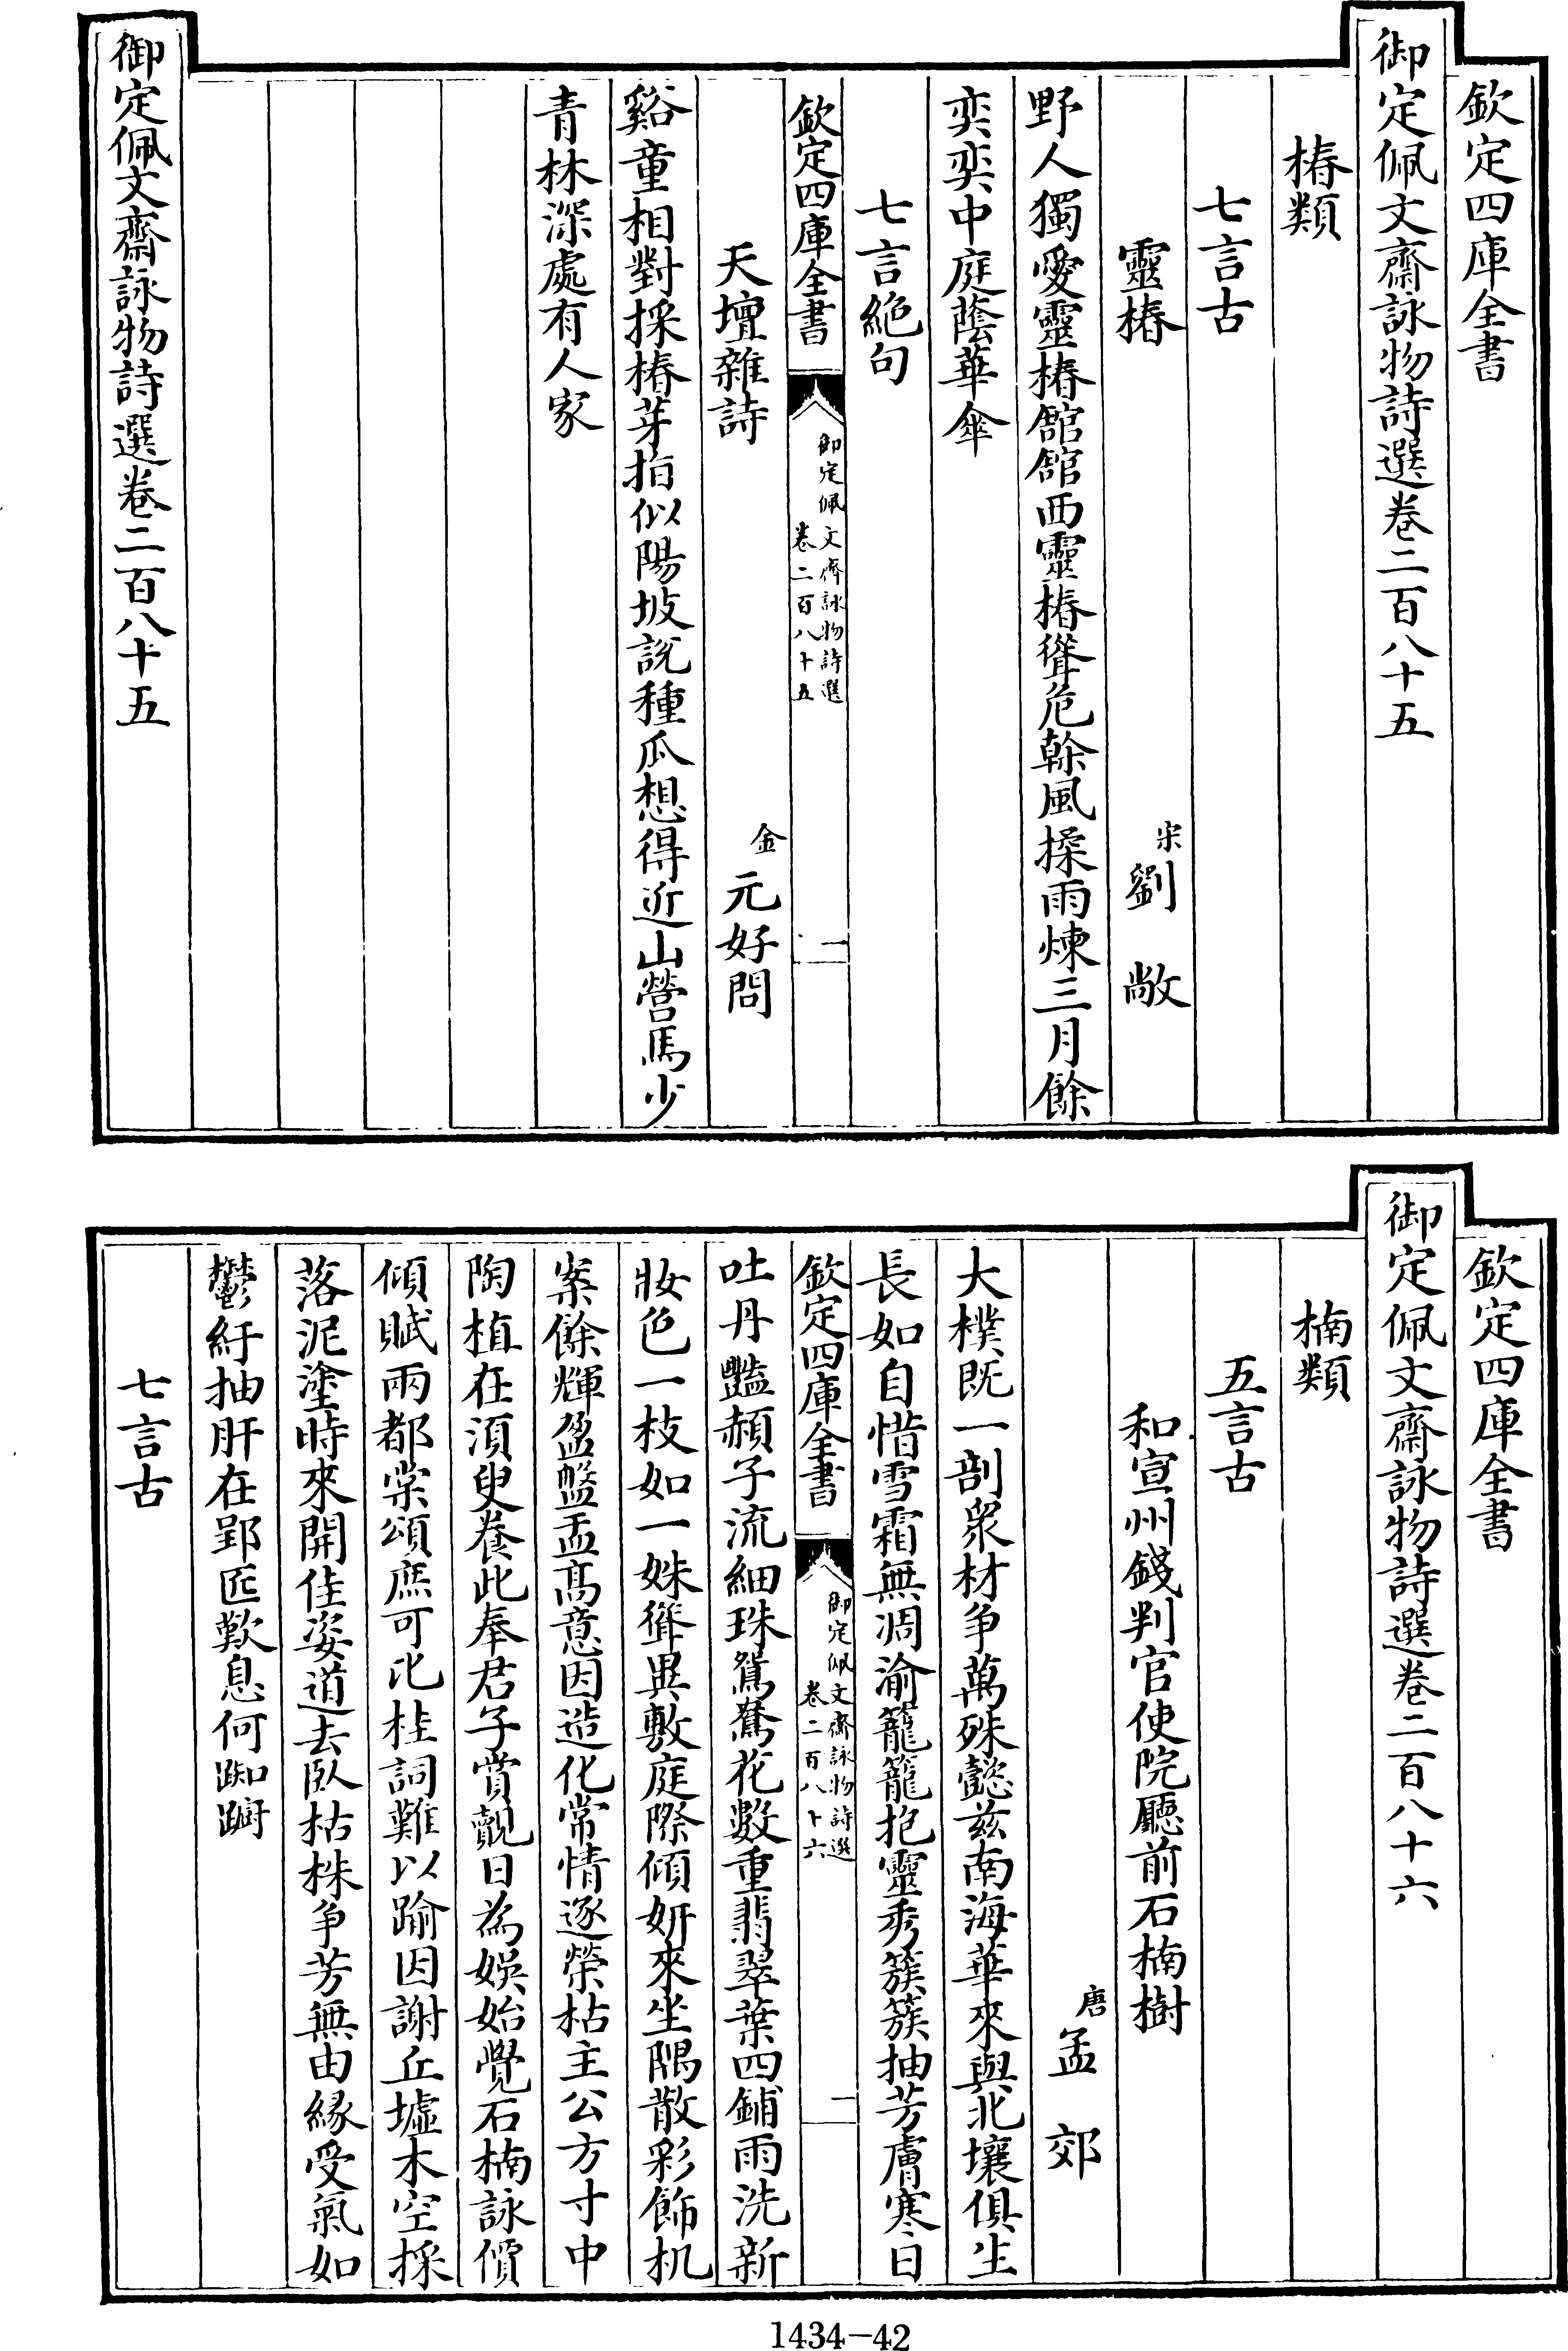 欽定四庫全書
御定佩文齋詠物詩選卷二百八十五
椿類
七言古
靈椿
宋劉敞
野人獨愛靈椿館館西靈椿聳危榦風揉雨煉三月餘
奕奕中庭蔭華傘
七言絶句
欽定四庫全書
御定佩文齋詠物詩選
卷二百八十五
一
天壇雜詩
金元好問
谿童相對採椿芽指似陽坡說種瓜想得近山營馬少
青林深處有人家
御定佩文齋詠物詩選卷二百八十五
欽定四庫全書
御定佩文齋詠物詩選卷二百八十六
楠類
五言古
和宣州錢判官使院廳前石楠樹
唐孟郊
大樸既一剖衆材争萬殊懿兹南海華來與北壤俱生
長如自惜雪霜無凋渝籠籠抱靈秀簇簇抽芳膚寒日
欽定四庫全書
御定佩文齋詠物詩選
卷二百八十六
一
吐丹豔頳子流細珠鴛鴦花數重翡翠葉四鋪雨洗新
妝色一枝如一姝聳異敷庭際傾妍來坐隅散彩飾机
案餘輝盈盤盂髙意因造化常情逐榮枯主公方寸中
陶植在須臾養此奉君子賞覿日為娛始覺石楠詠價
傾賦兩都棠頌庶可比桂詞難以踰因謝丘墟木空採
落泥塗時來開佳姿道去臥枯株争芳無由緣受氣如
鬱紆抽肝在郢匠歎息何踟躕
七言古
1434-42